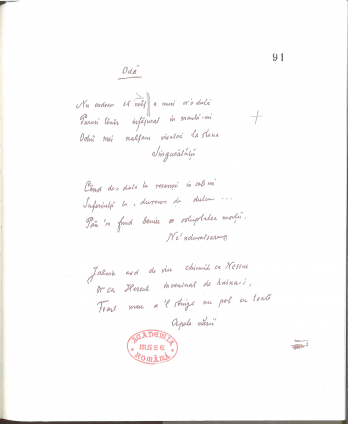 91
Odă
Nu credeam să învăţ a muri vr'o dată
Pururi tânăr înfăşurat în manta-mi
Ochii mei nalţam visători la steua
Singurătăţii
Când de-o data tu resarişi in cale-mi
Suferinţă tu, dureros de dulce ...
Păn 'n fund băui voluptatea morţii.
Ne'nduratoarea
Jalnic ard de viu chinuit ca Nessus
Or ca Hercul inveninat de haina-i,
Focul meu a'l stinge nu pot cu toate
Apele mării
ACADEMIA
MSSE
ROMÂNĂ